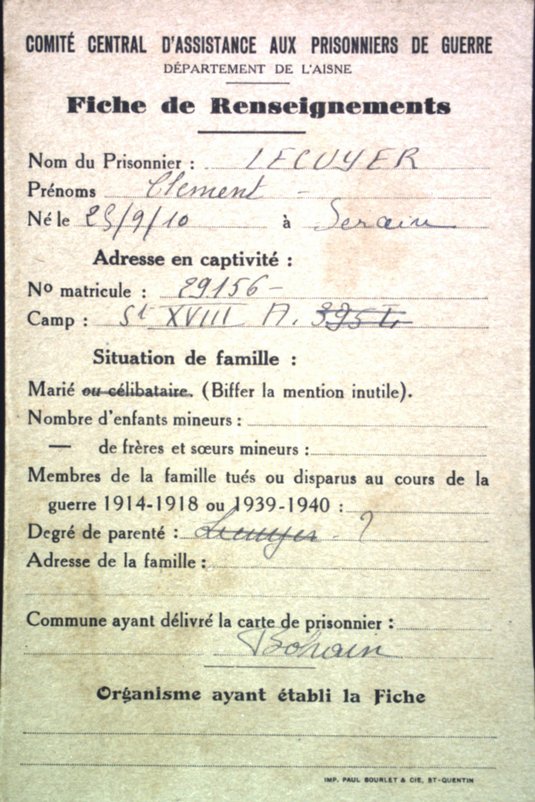 COMITÉ CENTRAL D'ASSISTANCE AUX PRISONNIERS DE GUERRE
DÉPARTEMENT DE L'AISNE
Fiche de Renseignements
Nom du Prisonnier : LECUYER
Prénoms Clement -
Né le 23/9/10 à Serain
Adresse en captivité :
No matricule : 29156 -
Camp : St XVIII A. 395 L
Situation de famille :
Marié ou célibataire. (Biffer la mention inutile).
Nombre d'enfants mineurs :
— de frères et sœurs mineurs :
Membres de la famille tués ou disparus au cours de la
guerre 1914-1918 ou 1939-1940 :
Degré de parenté : Lecuyer - ?
Adresse de la famille :
Commune ayant délivré la carte de prisonnier :
Bohain
Organisme ayant établi la Fiche
IMP. PAUL BOURLET & CIE, ST-QUENTIN